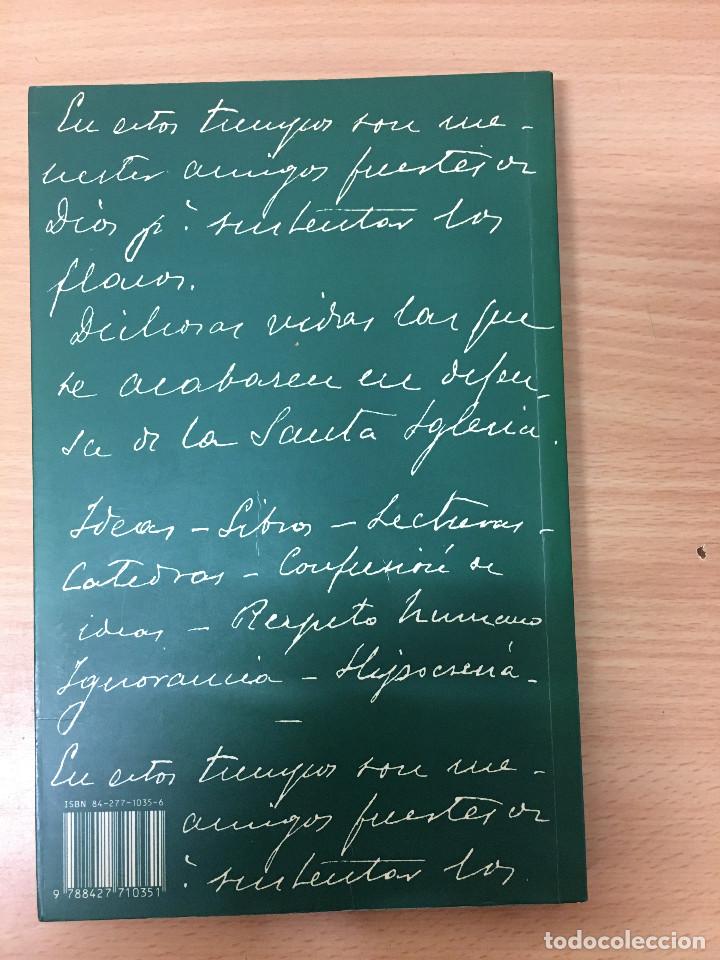 En estos tiempos son me-
nester amigos fuertes de
Dios pª sustentar los
flacos.
Dichosas vidas las que
se acabasen en defen-
sa de la Santa Iglesia.
Ideas - Libros - Lecturas -
Catedras - Confusión de
ideas - Respeto humano
Ignorancia - Hipocresía -
-
En estos tiempos son me-
amigos fuertes de
ª sustentar los
ISBN 84-277-1035-6
9 788427 710351
todocoleccion
todocoleccion.net